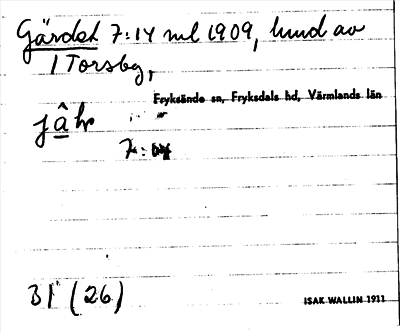 Gärdet 7:14 ml 1909, lund av
1 Torsby,
Fryksände sn, Fryksdals hd, Värmlands län
jâhr
7:14
31 (26)
ISAK WALLIN 1911